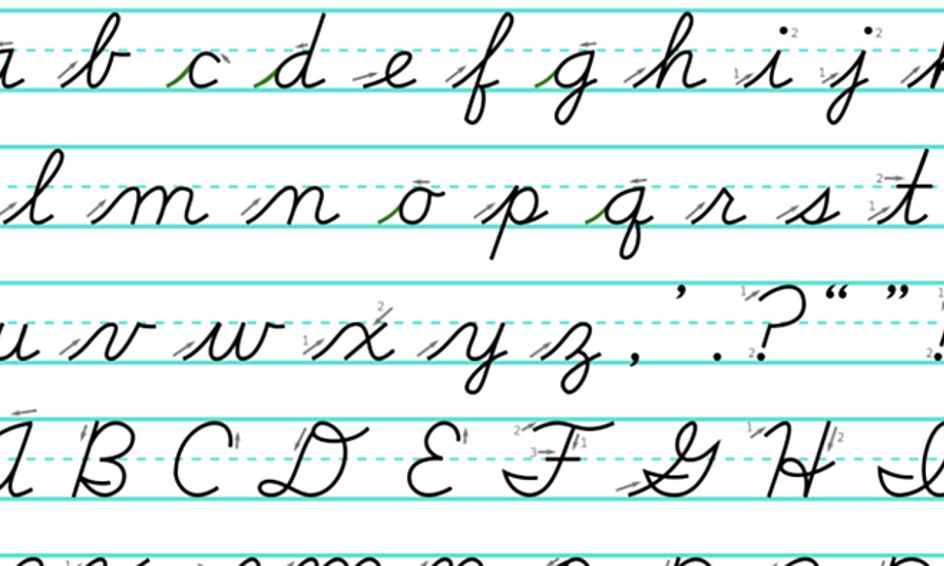 a b c d e f g h i j k
l m n o p q r s t
u v w x y z , ’ . ? “ ” !
A B C D E F G H I